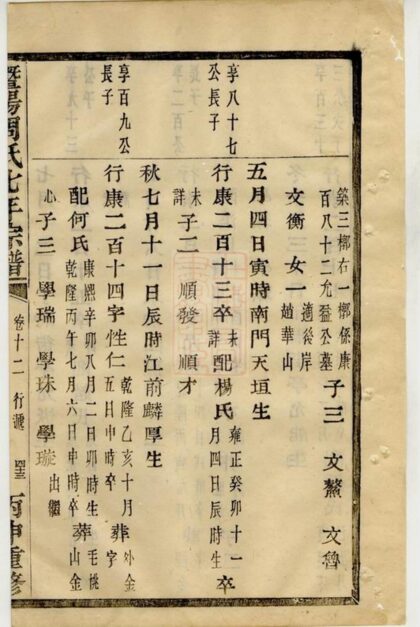 築三槨右一槨係康
百八十二允盈公墓
子三 文鰲 文魯
文衡 女一
適後岸
趙華山
享八十七
公長子
五月四日寅時南門天垣生
行康二百十三卒
未
詳
配楊氏
雍正癸卯十一
月四日辰時生
卒
未
詳
子二 順發 順才
享百九公
長子
秋七月十一日辰時江前麟厚生
行康二百十四字性仁
乾隆乙亥十月
五日申時卒
葬
外金
字
配何氏
康熙辛卯八月二日卯時生
乾隆丙午七月六日申時卒
葬
毛桃
山金
心
子三 學瑞 學珠 學璇
出繼
暨陽周氏
宗譜
卷十二 行遞
丙申重修